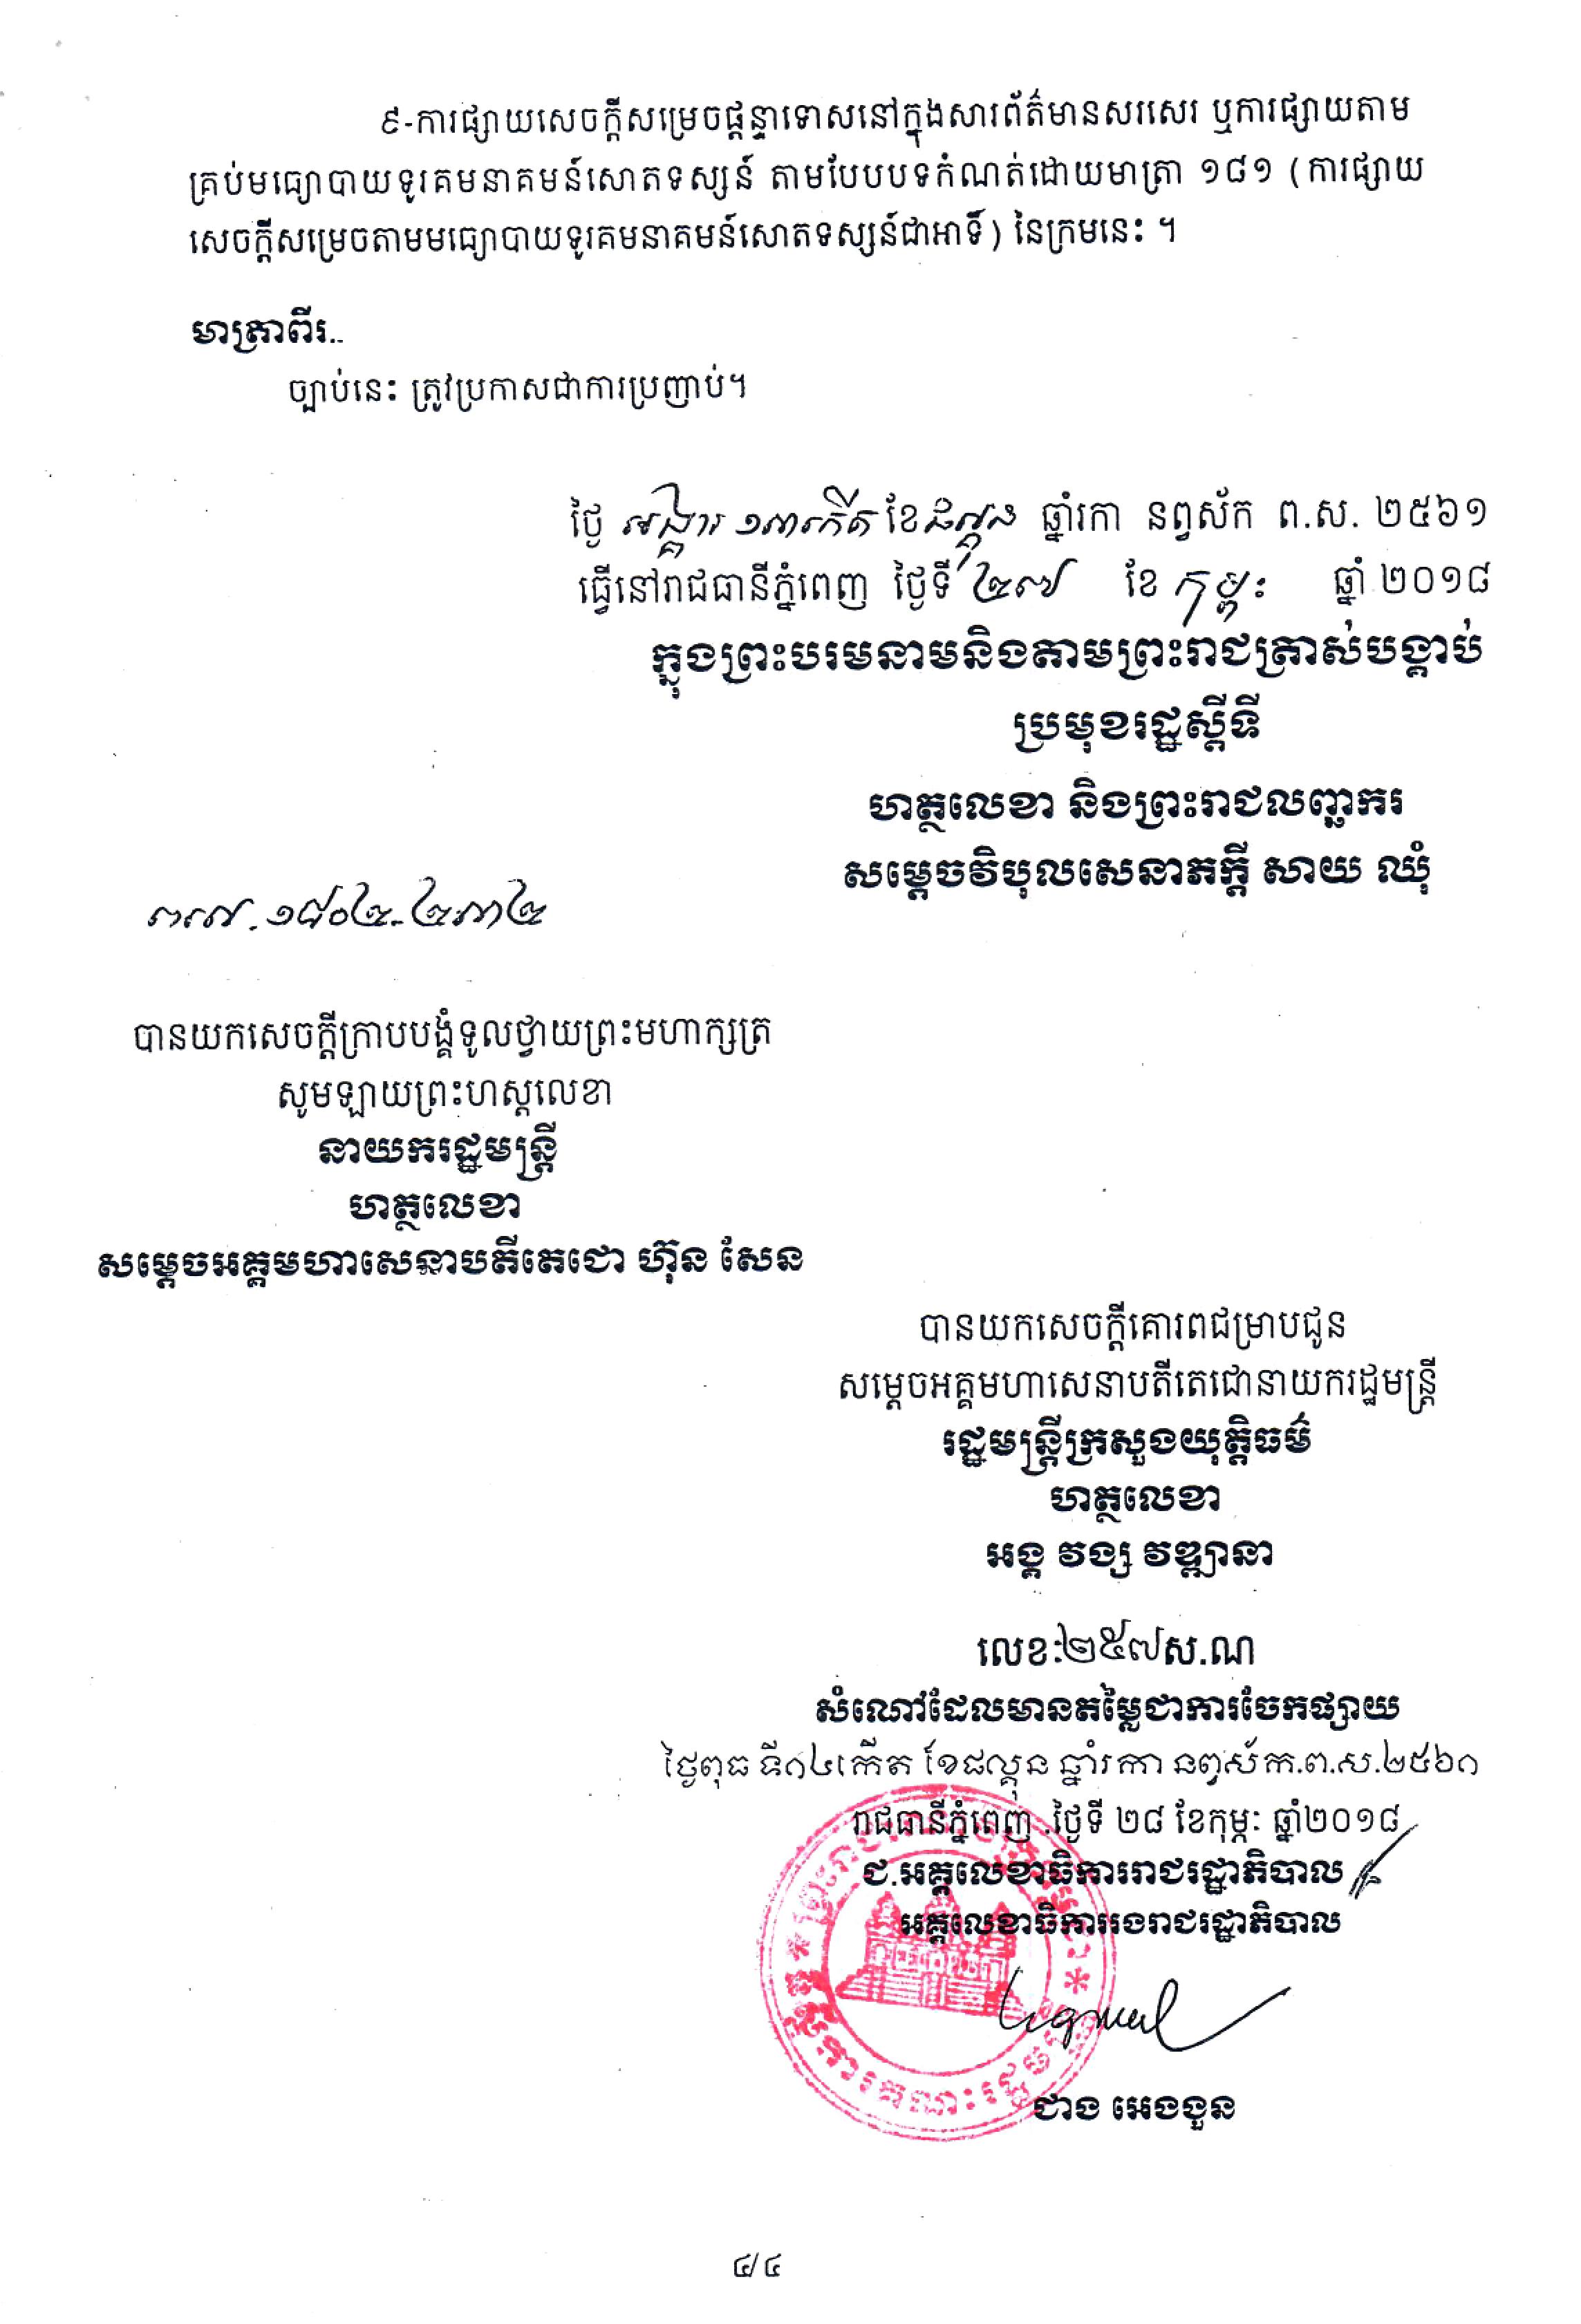 ៩-ការផ្សាយសេចក្តីសម្រេចផ្តន្ទាទោសនៅក្នុងសារព័ត៌មានសរសេរ ឬការផ្សាយតាម
គ្រប់មធ្យោបាយទូរគមនាគមន៍សោតទស្សន៍ តាមបែបបទកំណត់ដោយមាត្រា ១៨១ (ការផ្សាយ
សេចក្តីសម្រេចតាមមធ្យោបាយទូរគមនាគមន៍សោតទស្សន៍ជាអាទិ៍) នៃក្រមនេះ ។
មាត្រាពីរ..
ច្បាប់នេះ ត្រូវប្រកាសជាការប្រញាប់។
ថ្ងៃ អង្គារ ១៣កើត ខែផល្គុន ឆ្នាំរកា នព្វស័ក ព.ស. ២៥៦១
ធ្វើនៅរាជធានីភ្នំពេញ ថ្ងៃទី ២៧ ខែ កុម្ភៈ ឆ្នាំ ២០១៨
ក្នុងព្រះបរមនាមនិងតាមព្រះរាជត្រាស់បង្គាប់
ប្រមុខរដ្ឋស្តីទី
ហត្ថលេខា និងព្រះរាជលញ្ឆករ
សម្តេចវិបុលសេនាភក្តី សាយ ឈុំ
ព.រល.១៨០២.២៣២
បានយកសេចក្តីក្រាបបង្គំទូលថ្វាយព្រះមហាក្សត្រ
សូមឡាយព្រះហស្តលេខា
នាយករដ្ឋមន្ត្រី
ហត្ថលេខា
សម្តេចអគ្គមហាសេនាបតីតេជោ ហ៊ុន សែន
បានយកសេចក្តីគោរពជម្រាបជូន
សម្តេចអគ្គមហាសេនាបតីតេជោនាយករដ្ឋមន្ត្រី
រដ្ឋមន្ត្រីក្រសួងយុត្តិធម៌
ហត្ថលេខា
អង្គ វង្ស វឌ្ឍានា
លេខ:២៥៧ស.ណ
សំណៅដែលមានតម្លៃជាការចែកផ្សាយ
ថ្ងៃពុធ ទី១៤កើត ខែផល្គុន ឆ្នាំរកា នព្វស័ក.ព.ស.២៥៦១
រាជធានីភ្នំពេញ .ថ្ងៃទី ២៨ ខែកុម្ភៈ ឆ្នាំ២០១៨
ជ.អគ្គលេខាធិការរាជរដ្ឋាភិបាល
អគ្គលេខាធិការរងរាជរដ្ឋាភិបាល
ជាង អេងងួន
៤/៤